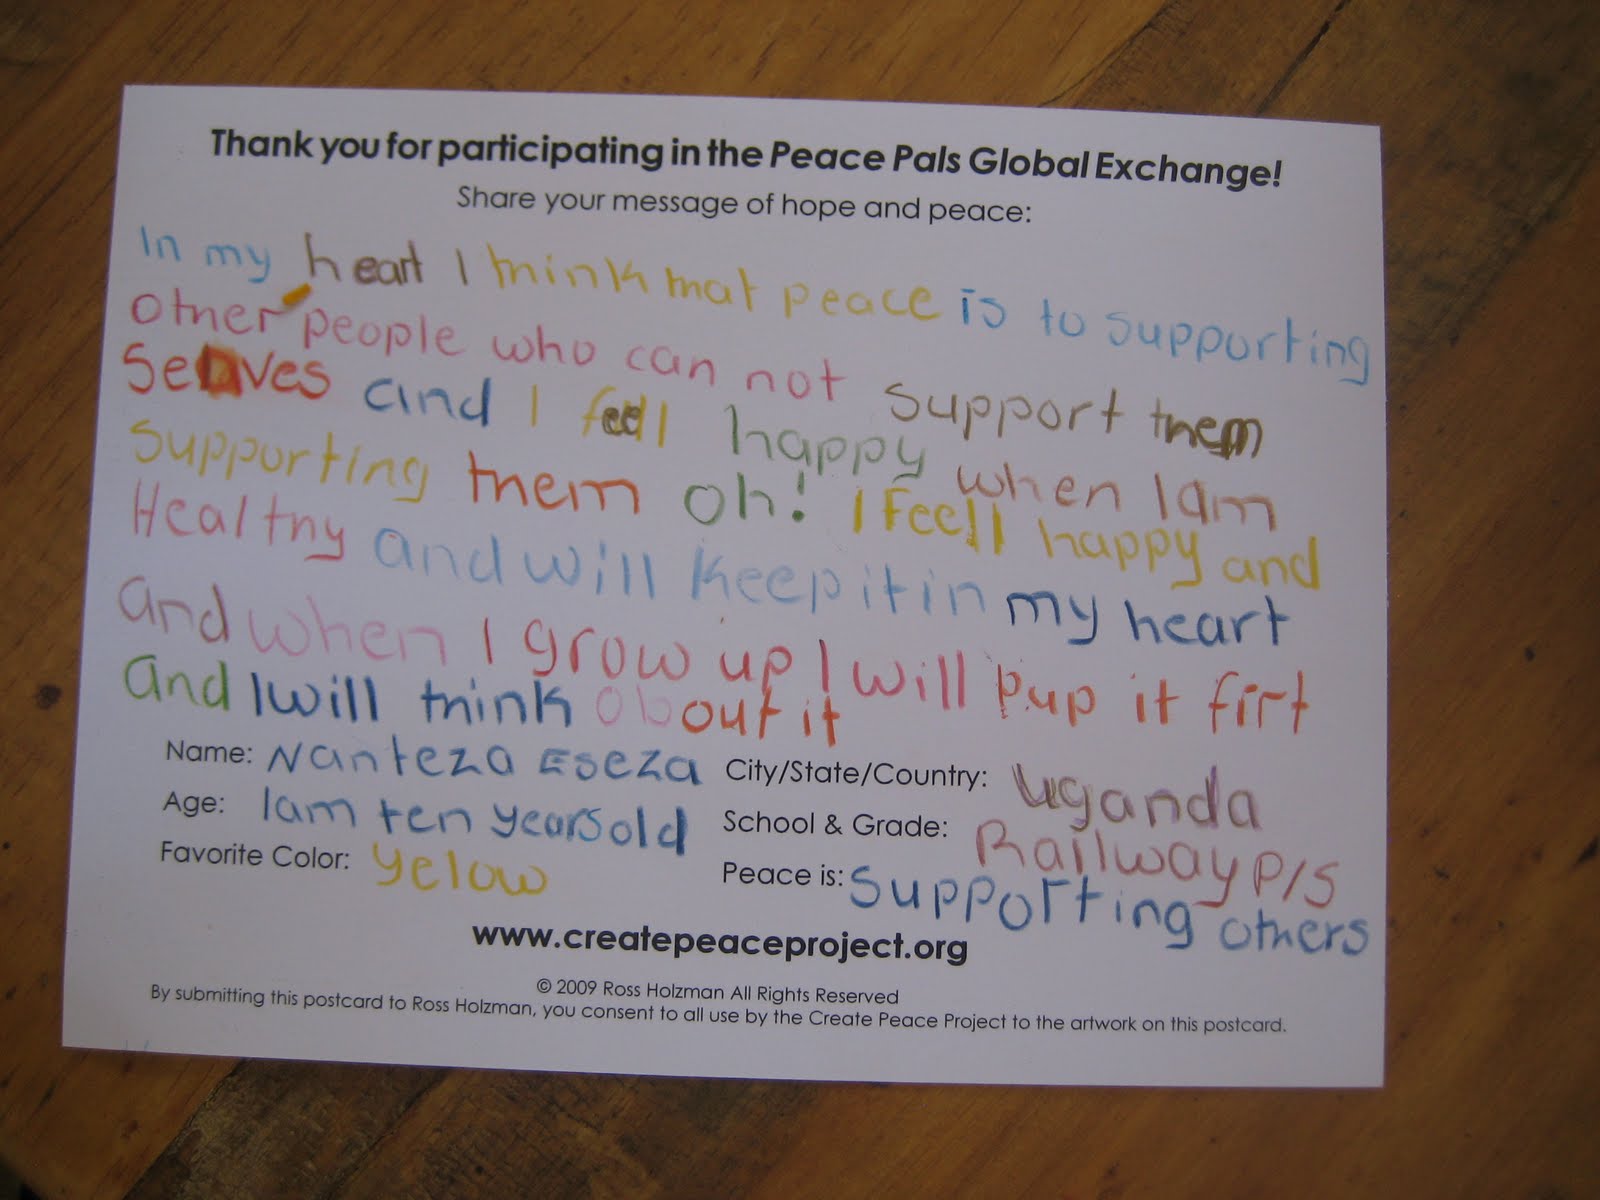 Thank you for participating in the Peace Pals Global Exchange!
Share your message of hope and peace:
In my heart I think that peace is to supporting
other people who can not support them
selves and I feel happy when I am
supporting them oh! I feell happy and
Healthy and will keep it in my heart
and when I grow up I will pup it firt
and I will think about it
Name: Nanteza Eseza
City/State/Country: Uganda
Age: I am ten years old
School & Grade: Railway P/S
Favorite Color: yelow
Peace is: supporting others
www.createpeaceproject.org
© 2009 Ross Holzman All Rights Reserved
By submitting this postcard to Ross Holzman, you consent to all use by the Create Peace Project to the artwork on this postcard.